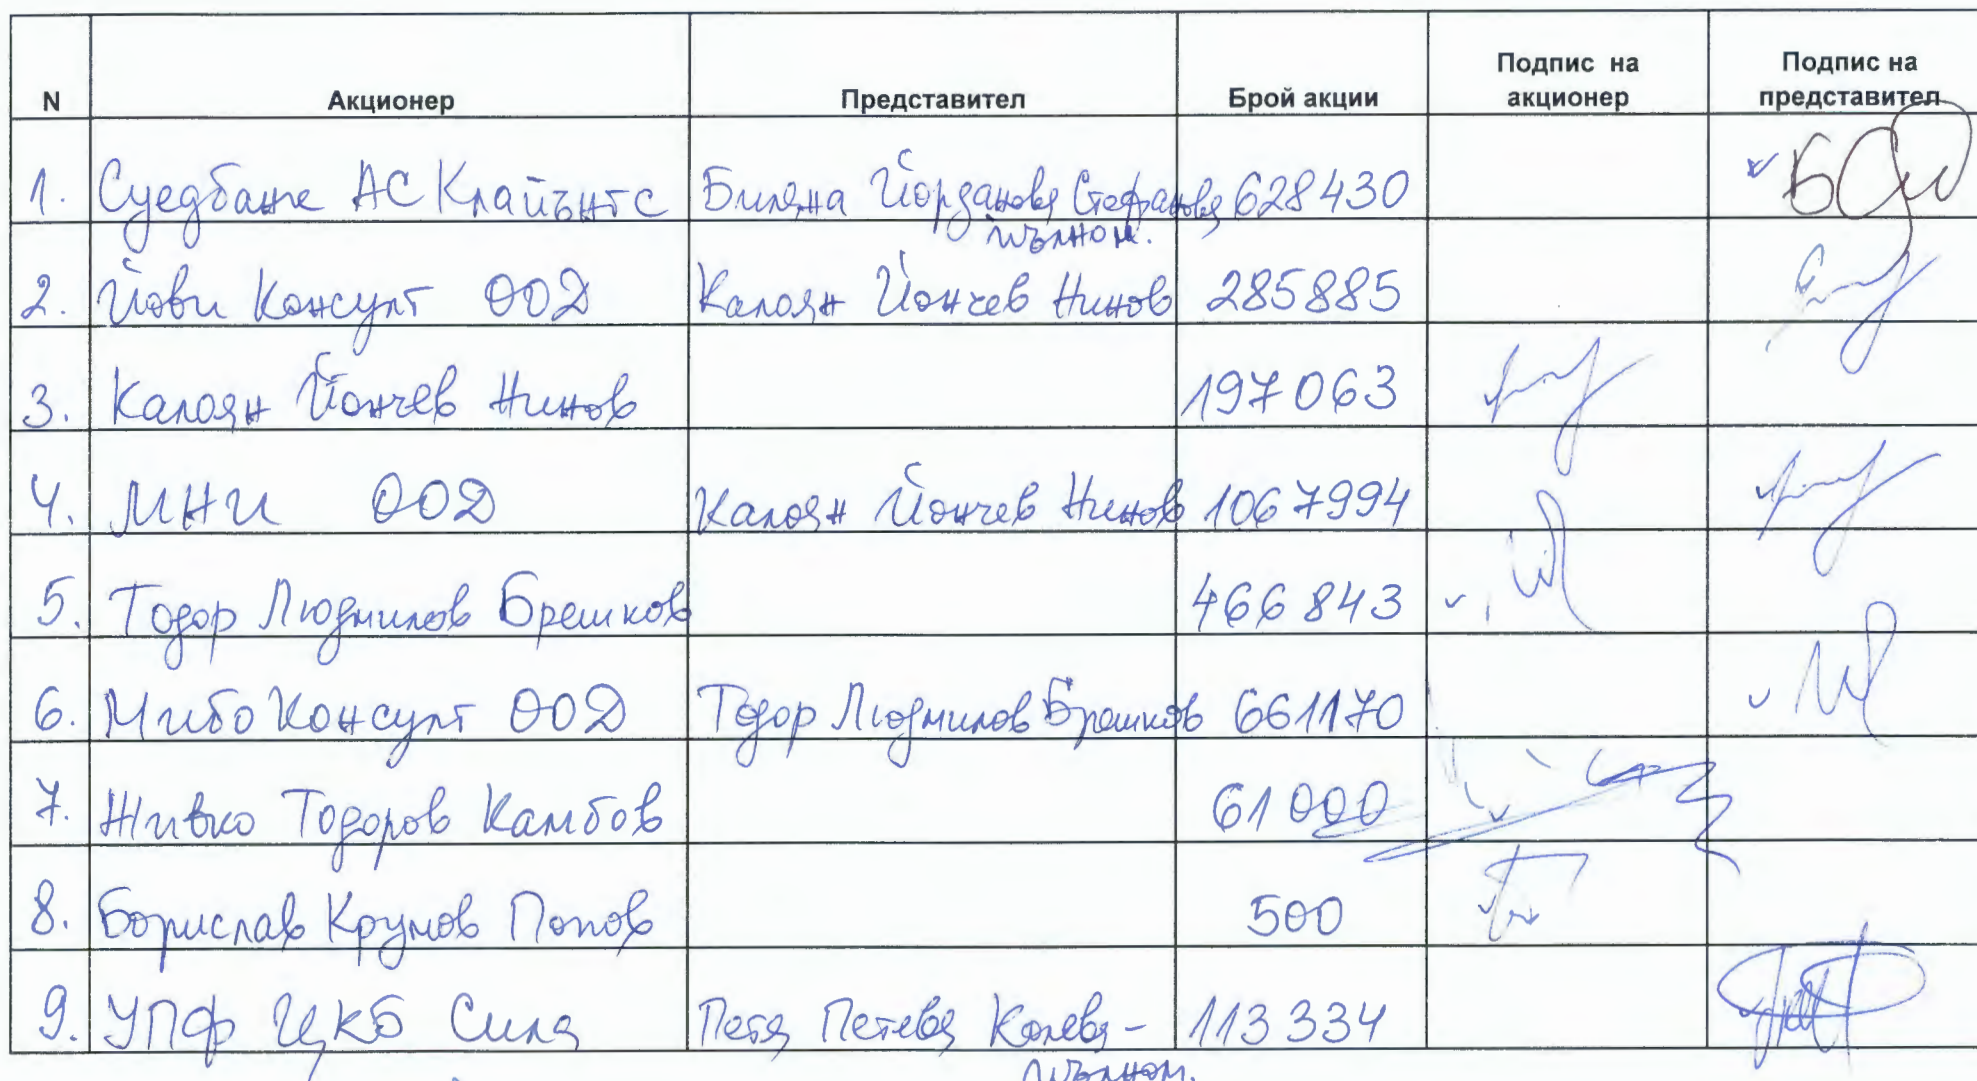 N Акционер Представител Брой акции Подпис на акционер Подпис на представител
1. Суедбанк АС Клайънтс Биляна Йорданова Стефанова 628430
пълном.
2. Йови Консулт ООД Калоян Йончев Нинов 285885
3. Калоян Йончев Нинов 197063
4. МНИ ООД Калоян Йончев Нинов 1067994
5. Тодор Людмилов Брешков 466843
6. Мибо Консулт ООД Тодор Людмилов Брешков 661170
7. Живко Тодоров Камбов 61000
8. Борислав Крумов Попов 500
9. УПФ ЦКБ Сила Петя Петева Колева - 113334
пълном.